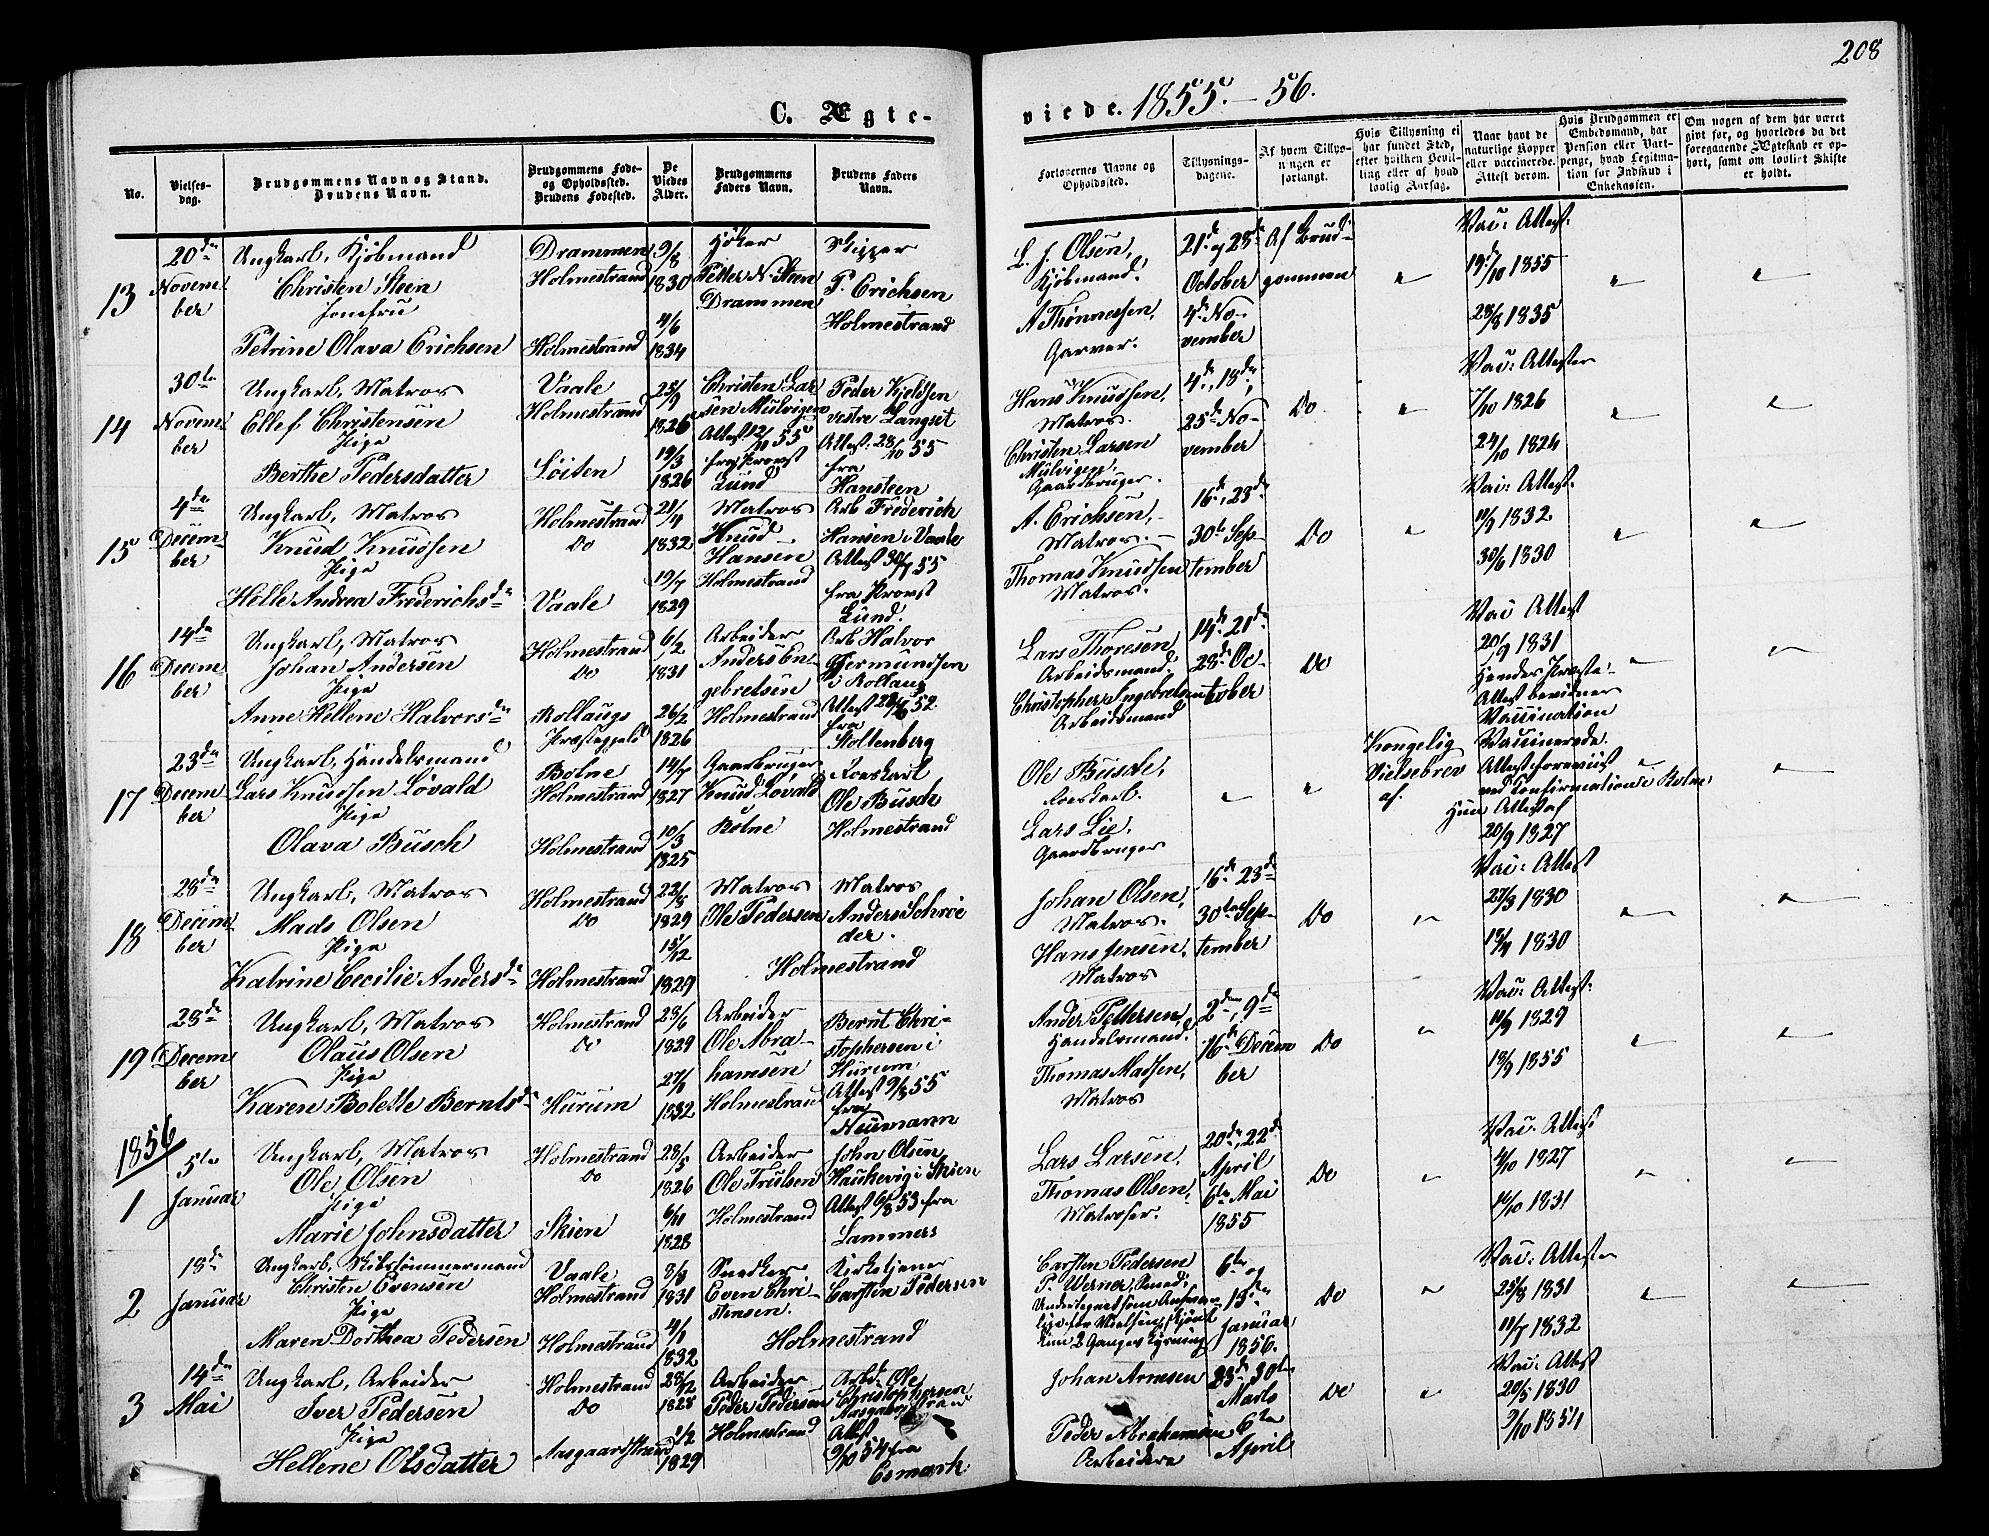 208
C. Ægte-
viede. 1855.-56.
No.
Vielses-
dag.
Brudgommens Navn og Stand.
Brudens Navn.
Brudgommens Føde-
og Opholdssted.
Brudens Fødested.
De
Viedes
Alder.
Brudgommens
Faders Navn.
Brudens Faders
Navn.
Forlovernes Navne og
Opholdssted.
Tillysnings-
dagene.
Af hvem Tillys-
ningen er
forlangt.
Hvis Tillysning ei
har fundet Sted,
efter hvilken Bevil-
ling eller af hvad
lovlig Aarsag.
Naar havt de
naturlige Kopper
eller vaccinerede.
Attest derom.
Hvis Brudgommen er
Embedsmand, har
Pension eller Vart-
penge, hvad Legitima-
tion for Indskud i
Enkekassen.
Om nogen af dem har været
givt før, og hvorledes da det
foregaaende Ægteskab er op-
hørt, samt om lovligt Skifte
er holdt.
13
20de
Novem
ber
Ungkarl, Kjøbmand
Christen Steen
Jomfru
Petrine Olava Erichsen
Drammen
Holmestrand
Holmestrand
9/8
1830
4/6
1834
Petter N. Steen
Drammen
Skipper
P. Erichsen
Holmestrand
L. J. Olsen,
Kjøbmand.
A Thønnessen,
Garver.
21de 28de
October
4de No-
vember
Af Brud-
gommen
Vac: Attest:
19/10 1855
28/8 1835
14
30te
Novem
ber
Ungkarl, Matros
Ellef Christensen
Pige
Berthe Pedersdatter
Vaale
Holmestrand
Løiten
25/9
1826
19/3
1826
Christen Lar
sen Mulvigen
Attest 12/10 55
fra Provst
Lund
Peder Kjeldsen
vestre Langset
Attest. 28/10 55
fra
Hansteen
Hans Knudsen,
Matros.
Christen Larsen
Mulvigen,
Gaardbruger.
4de, 18de,
25de No-
vember
Do
Vac: Attester
7/10 1826
24/10 1824
15
4de
Decem-
ber
Ungkarl, Matros
Knud Knudsen
Pige
Helle Andrea Frederichsdr
Holmestrand
Do
Vaale
21/4
1832
19/7
1829
Matros
Knud
Hansen
Holmestrand
Arb Frederich
Hansen i Vaale
Attest 30/7 55
fra Provst
Lund.
A. Erichsen,
Matros.
Thomas Knudsen
Matros.
16de, 23de
30te Sep-
tember
Do
Vac: Attest.
11/9 1832
30/6 1830
16
14de
Decem
ber
Ungkarl, Matros
Johan Andersen
Pige
Anne Hellene Halvorsdr
Holmestrand
Do
Rollaugs
Præstegjeld
6/2
1831
26/2
1826
Arbeider
Anders En-
gebretsen
Holmestrand
Arb Halvor
Germundsen
i Rollaug
fra
Stoltenberg
Lars Thoresen,
Arbeidsmand.
Christopher Ingebretsen
Arbeidsmand
14de 21de
28de Oc-
tober
Do
Vac Attest
20/9 1831
Hendes Præste-
Attest bevidner
Vaccination
17
23de
Decem
ber
Ungkarl, Handelsmand
Lars Knudsen Løvald
Pige
Olava Busch
Botne
Holmestrand
Holmestrand
14/7
1827
10/3
1825
Gaardbruger
Knud Løvald
Botne
Ole Busch
Holmestrand
Ole Busch,
Lars Lie,
Gaardbruger
Kongelig
Vielsebrev
af.
Vaccinerede.
Attest foreviist
ved Confirmation i Botne
Hun Attest af
20/9 1827
18
28de
Decem
ber
Ungkarl, Matros
Mads Olsen
Pige
Katrine Cecilie Andersdr
Holmestrand
Do
Holmestrand
1829
15/12
1829
Matros
Ole Pedersen
Matros
Anders Schrøe
der.
Holmestrand
Johan Olsen,
Matros.
Hans Jensen,
Matros
16de 23de
30te Sep-
tember
Do
Vac: Attest
27/9 1830
1830
19
28de
Decem
ber
Ungkarl, Matros
Olaus Olsen
Pige
Karen Bolette Berntsdr
Holmestrand
Do
Hurum
28/6
1829
1832
Arbeider
Ole Abra-
hamsen
Holmestrand
Bernt Chri-
stophersen i
Hurum
Attest 9/8 55
fra
Neumann
Ander Pettersen,
Handelsmand.
Thomas Madsen,
Matros
2den, 9de
16de Decem
ber
Do
Vac: Attest.
11/9 1829
18/9 1855
1856
1
5te
Januar
Ungkarl, Matros
Ole Olsen
Pige
Marie Johnsdatter
Holmestrand
Do
Skien
28/5
1826
6/11
1828
Arbeider
Ole Trulsen
Holmestrand
John Olsen
Haukevig i Skien
Attest 9/8 53 fra
Lammers
Lars Larsen,
Thomas Olsen,
Matroser.
20de, 22de
April
6te Mai
1855
Do
Vac. Attest
4/10 1827
14/10 1831
2
18de
Januar
Ungkarl, Skibstømmermand
Christen Evensen
Pige
Maren Dorthea Pedersen
Vaale
Holmestrand
Holmestrand
8/8
1831
4/1
1832
Snedker
Even Chri-
stensen.
Kirketjener
Carsten Pedersen
Holmestrand
Carsten Pedersen
P. Werner, Smed.
Undertegnet som Ansvar-
lig for Vielsen, skjønt
kun 2 Ganges Lysning
6te og
13de
Januar,
1856.
Do
Vac: Attester
25/8 1831
11/7 1832
3
14de
Mai
Ungkarl, Arbeider
Iver Pedersen
Pige
Hellene Olsdatter
Holmestrand
Do
Aasgaardstrand
28/12
1828
1/2
1829
Arbeider
Peder Pedersen
Holmestrand
Arbd. Ole
Christophersen
Aasgaardstrand
Attest
9/10 54 fra
Esmark
Johan Arnesen
Peder Abrahamsen
Arbeidere
23de 30te
Marts
6te
April
Do
Vac: Attest
20/5 1830
9/10 1854